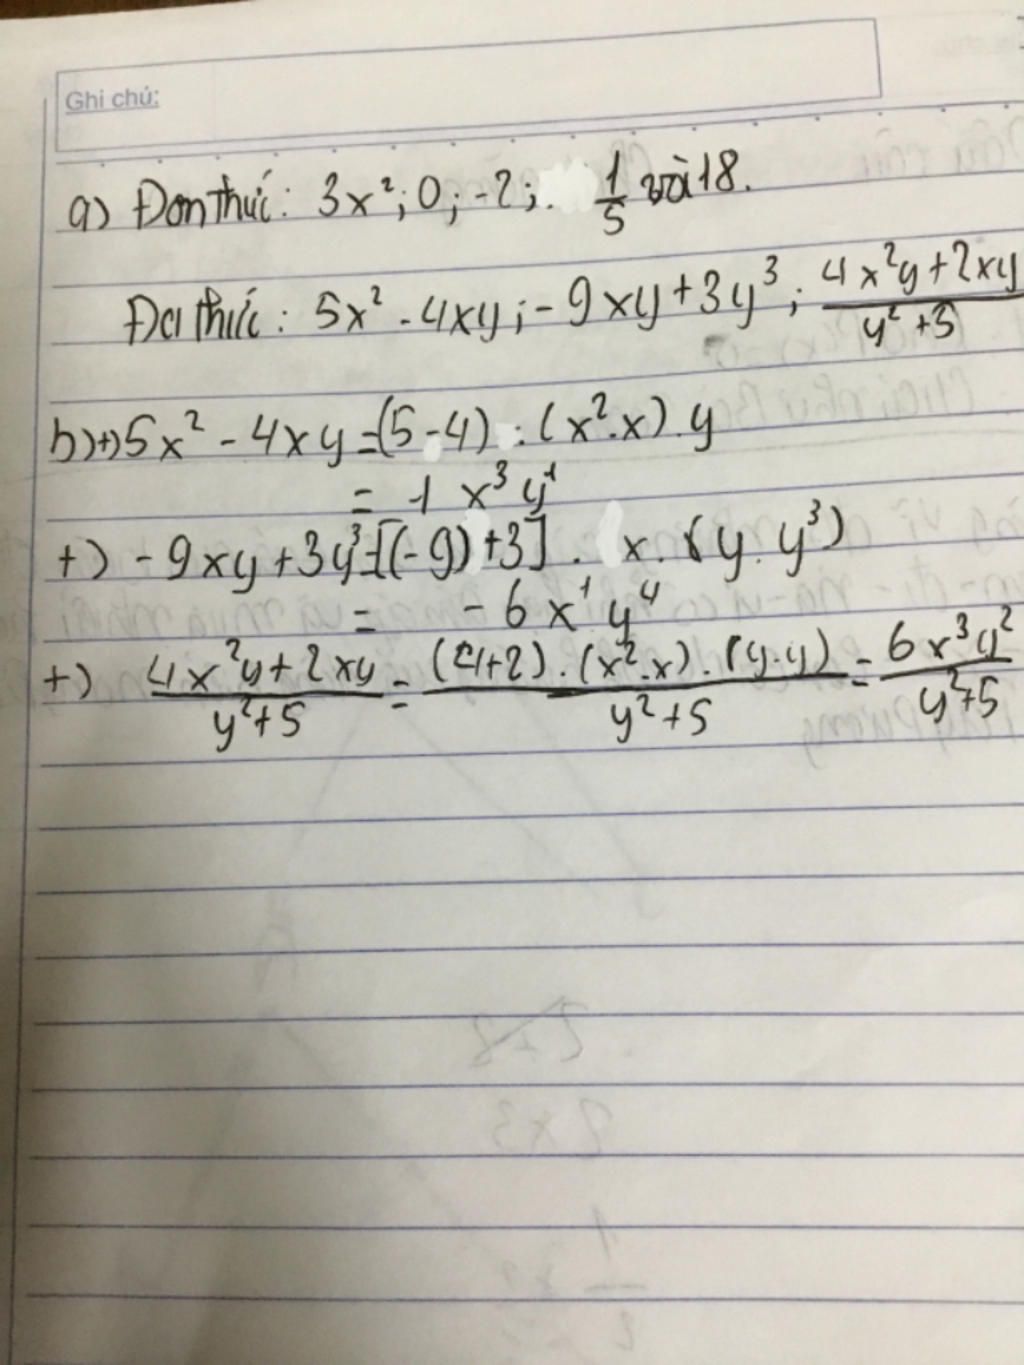 Ghi chú:
a) Đơn thức: 3x²; 0; -2; . 1/5 và 18.
Đa thức: 5x² - 4xy; - 9xy + 3y³; (4x²y + 2xy)/(y² + 5)
b) +) 5x² - 4xy = (5-4) . (x².x) . y
= 1 x³ y¹
+) - 9xy + 3y³ = [(-9) + 3] . x . (y . y³)
= - 6 x¹ y⁴
+) (4x²y + 2xy)/(y² + 5) = ((4+2) . (x².x) . (y.y))/(y² + 5) = (6x³y²)/(y² + 5)